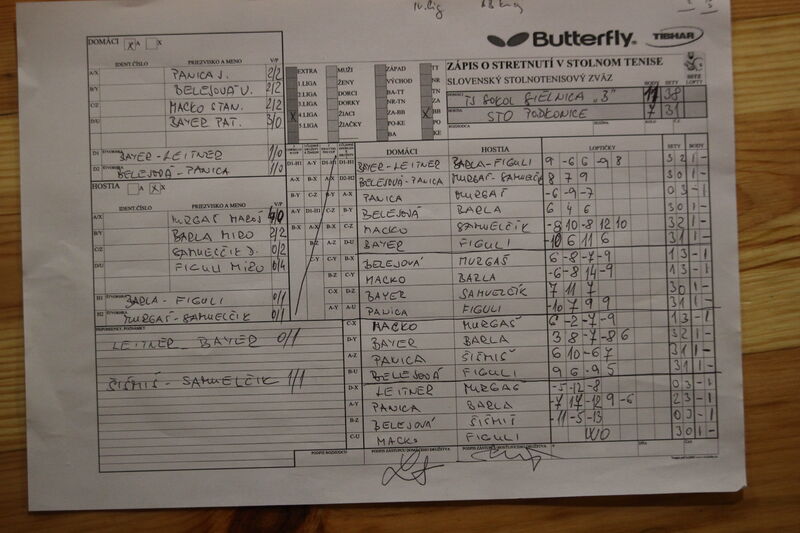 IV. lig
Butterfly
TIBHAR
ZÁPIS O STRETNUTÍ V STOLNOM TENISE
SLOVENSKÝ STOLNOTENISOVÝ ZVÄZ
BODY SETY
TJ SOKOL "B" 11 38
STO PODKONICE 7 31
DOMÁCI A X
IDENT.ČÍSLO PRIEZVISKO A MENO V/P
A/X PANICA J. 2/2
B/Y BELEJOVÁ U. 2/2
C/Z MACKO STAN. 2/2
D/U BAYER PAT. 3/0
D1 BAYER-LEITNER 1/0
D2 BELEJOVÁ-PANICA 1/0
HOSTIA A X
IDENT.ČÍSLO PRIEZVISKO A MENO V/P
A/X MURGAŠ MAROŠ 4/0
B/Y BARLA MIRO 2/2
C/Z SAMUELČÍK J. 0/2
D/U FIGULI MIRO 0/4
H1 BARLA - FIGULI 0/1
H2 MURGAŠ-SAMUELČÍK 0/1
PRIPOMIENKY, POZNÁMKY
LEITNER BAYER 0/1
ŠIŠMIŠ - SAMUELČIK 1/1
EXTRA MUŽI ZÁPAD TT
1.LIGA ŽENY VÝCHOD NR
2.LIGA DORCI BA-TT TN
3.LIGA DORKY NR-TN ZA
X 4.LIGA ŽIACI ZA-BB X BB
5.LIGA ŽIAČKY PO-KE PO
BA KE
DOMÁCI HOSTIA LOPTIČKY SETY
D1-H1 BAYER-LEITNER BARLA-FIGULI 9 -6 6 -9 8 3 2 1 -
D2-H2 BELEJOVÁ-PANICA MURGAŠ-SAMUELČÍK 8 7 9 3 0 1 -
A-X PANICA MURGAŠ -6 -9 -7 0 3 - 1
B-Y BELEJOVÁ BARLA 6 4 6 3 0 1 -
C-Z MACKO SAMUELČÍK -8 10 -8 12 10 3 2 1 -
D-U BAYER FIGULI -10 6 11 6 3 1 1 -
B-X BELEJOVÁ MURGAŠ 6 -8 -7 -9 1 3 - 1
C-Y MACKO BARLA -6 -8 14 -9 1 3 - 1
D-Z BAYER SAMUELČÍK 7 11 7 3 0 1 -
A-U PANICA FIGULI -10 7 9 9 3 1 1 -
C-X MACKO MURGAŠ 6 -2 -7 -9 1 3 - 1
D-Y BAYER BARLA 3 8 -7 -8 6 3 2 1 -
A-Z PANICA ŠIŠMIŠ 6 10 -6 7 3 1 1 -
B-U BELEJOVÁ FIGULI 9 6 -9 5 3 1 1 -
D-X LEITNER MURGAŠ -5 -12 -8 0 3 - 1
A-Y PANICA BARLA -7 17 -12 9 -6 2 3 - 1
B-Z BELEJOVÁ ŠIŠMIŠ -11 -5 -13 0 3 - 1
C-U MACKO FIGULI WO 3 0 1 -
PODPIS ROZHODCU PODPIS ZÁSTUPCU DOMÁCEHO DRUŽSTVA PODPIS ZÁSTUPCU HOSŤUJÚCEHO DRUŽSTVA